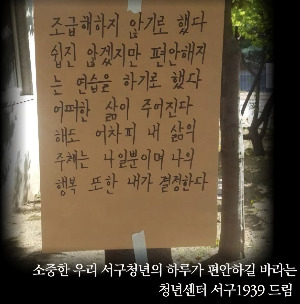 조급해하지 않기로 했다
쉽진 않겠지만 편안해지
는 연습을 하기로 했다
어떠한 삶이 주어진다
해도 어차피 내 삶의
주체는 나일뿐이며 나의
행복 또한 내가 결정한다
소중한 우리 서구청년의 하루가 편안하길 바라는
청년센터 서구1939 드림